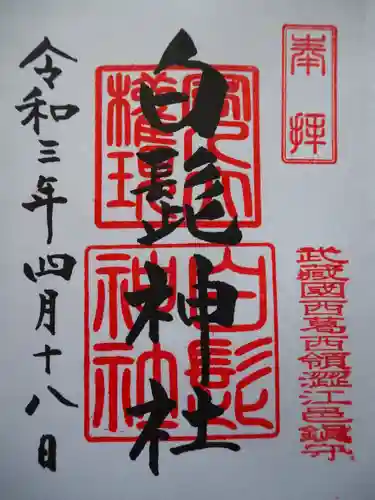 奉拝
武藏國西葛西領澀江邑鎭守
白髭神社
白髭
神社
令和三年四月十八日